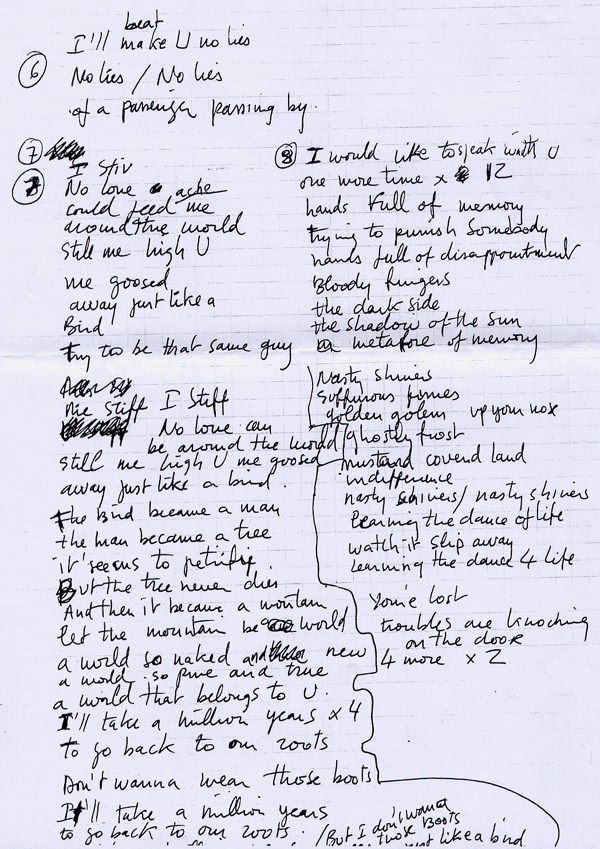 beat
I'll make U no lies
6 No lies / No lies
of a passenger passing by.
7
I Stiv
No love ache
could feed me
around the world
still me high U
me goosed
away just like a
Bird
Try to be that same guy
me stiff I Stiff
No love can
be around the world
still me high U me goosed
away just like a bind.
The Bird became a man
the man became a tree
it seems to petrify.
But the tree never dies
And then it became a montain
let the mountain be world
a world so naked new
a world so pure and true
a world that belongs to U.
I'll take a million years x 4
to go back to our roots
Don't wanna wear those boots
It'll take a million years
to go back to our roots. / But I don't wanna
those BOOTS
like a bind
8 I would like to speak with U
one more time x 12
hands Full of memory
Trying to punish Somebody
hands full of disappointment
Bloody fingers
the dark side
the shadow of the sun
metafore of memory
Nasty shivers
Suffurous fumes
golden golem up your nose
ghostly frost
mustard coverd land
indifference
nasty shivers / nasty shivers
Learning the dance of life
watch it slip away
Learning the dance 4 life
You're lost
troubles are knoching
on the door
4 more x 2